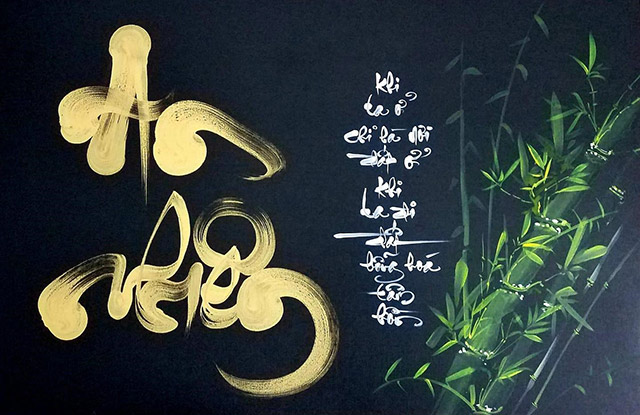 An
nhiên
Khi
ta ở
chỉ là nơi
đất ở
Khi
ta đi
đất
bỗng hoá
tâm
hồn